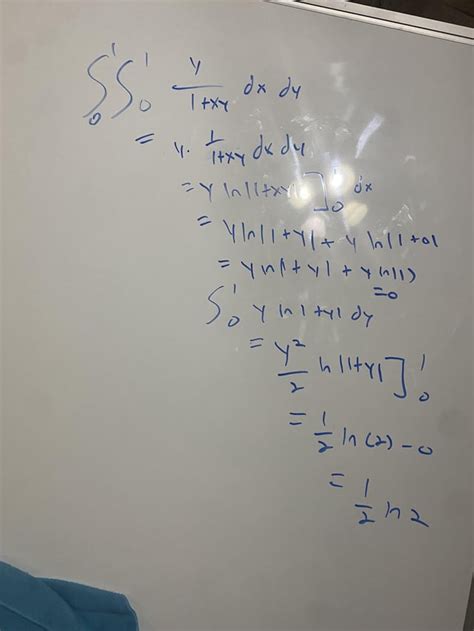 ∫₀¹ ∫₀¹ y/(1+xy) dx dy
= y · 1/(1+xy) dx dy
= y ln|1+xy|]₀¹ dx
= y ln|1+y| + y ln|1+0|
= y ln|1+y| + y ln(1)
=0
∫₀¹ y ln|1+y| dy
= y²/2 ln|1+y|]₀¹
= 1/2 ln(2) - 0
= 1/2 ln 2